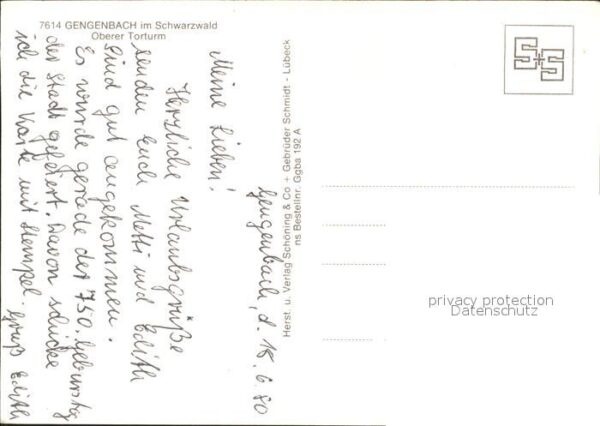 7614 GENGENBACH im Schwarzwald
Oberer Torturm
Gengenbach, d. 15.6.80
Meine Lieben!
Herzliche Urlaubsgrüße
senden Euch Metti und Edith
Sind gut angekommen.
Es wurde gerade der 750. Geburtstag
der Stadt gefeiert. Davon schicke
ich die Karte mit Stempel.
Gruß Edith
Herst. u. Verlag Schöning & Co + Gebrüder Schmidt - Lübeck
ns Bestellnr. Ggba 192 A
privacy protection
Datenschutz